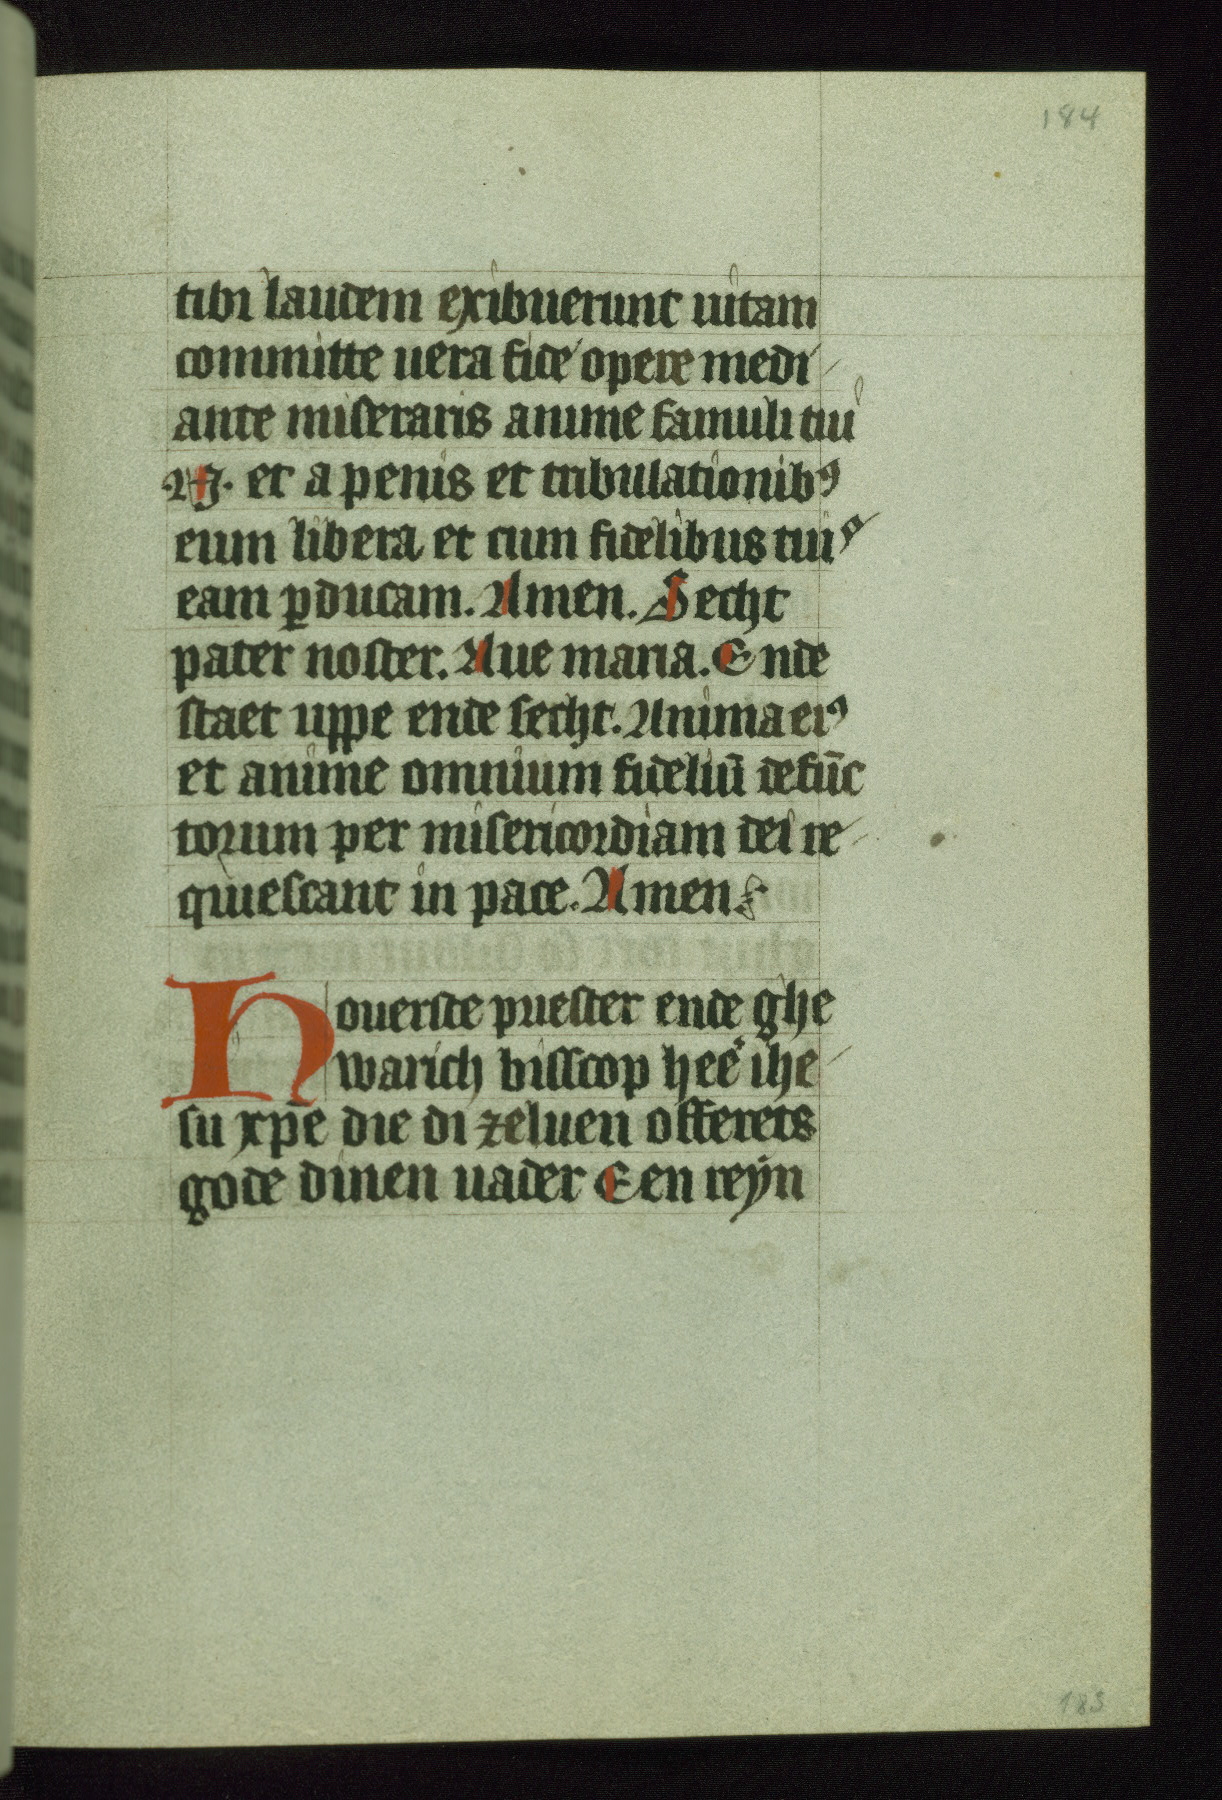 184
tibi laudem exibuerunt uitam
committe uera fide opere medi
ante miseraris anime famuli tui
.N. et a penis et tribulationibꝯ
eum libera et cum fidelibus tuis
eam ꝑducam. Amen. Secht
pater noster. Aue maria. Ende
staet uppe ende secht. Anima eiꝯ
et anime omnium fideliū defūc
torum per misericordiam dei re
quiescant in pace. Amen.
Houerste priester ende ghe
warich bisscop heē ihe
su xp̄e die di zeluen offerets
gode dinen uader Een reyn
183